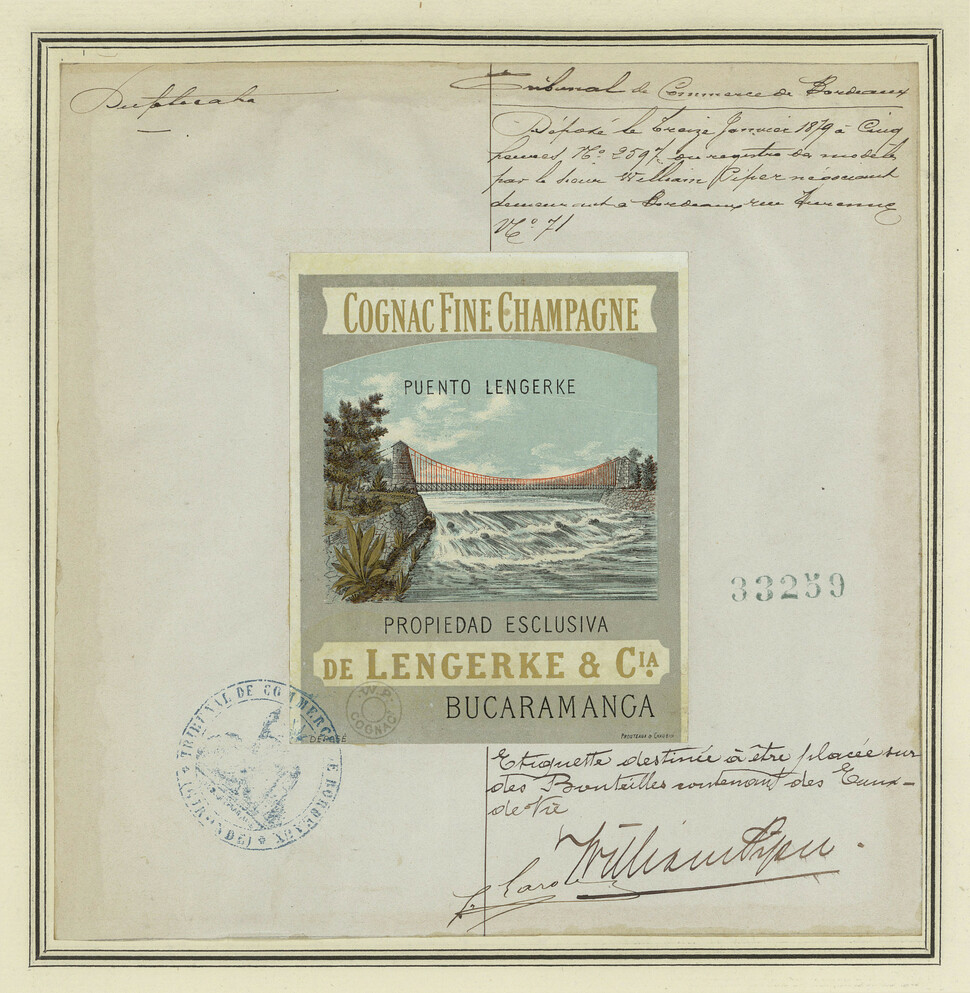 Duplicata
Tribunal de Commerce de Bordeaux
Déposé le treize Janvier 1879 à Cinq
heures, No. 2597 du registre des modèles
par le sieur William Piper négociant
demeurant à Bordeaux rue Turenne
No. 71
COGNAC FINE CHAMPAGNE
PUENTO LENGERKE
33259
PROPIEDAD ESCLUSIVA
DE LENGERKE & CIA.
BUCARAMANGA
W.P.
COGNAC
DÉPOSÉ
TRIBUNAL DE COMMERCE DE BORDEAUX
(GIRONDE)
Etiquette destinée à être placée sur
des Bouteilles contenant des Eaux-
de-Vie
William Piper